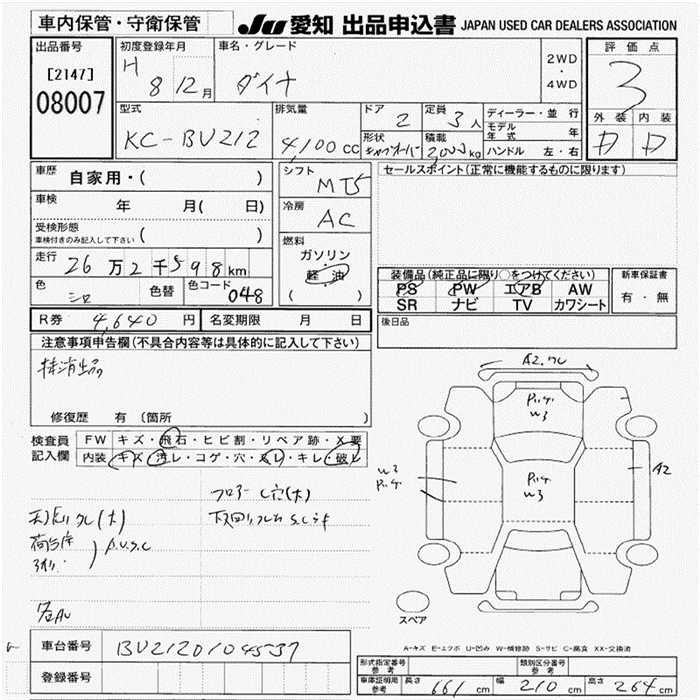 車内保管・守衛保管
JU 愛知 出品申込書 JAPAN USED CAR DEALERS ASSOCIATION
出品番号
[2147]
08007
初度登録年月
H 8 12月
車名・グレード
ダイナ
2WD
・
4WD
評価点
3
外装 内装
D D
型式
KC-BU212
排気量
4,100cc
ドア
2
定員
3人
形状
キャブオーバー
積載
3000kg
ディーラー・並行
モデル年式 年
ハンドル 左・右
車歴
自家用・( )
車検
年 月( 日)
受検形態
車検付きのみ記入して下さい ( )
走行
26万2千598km
色
シロ
色替
色コード
048
シフト
MT5
冷房
AC
燃料
ガソリン
・
軽油
( )
セールスポイント(正常に機能するものに限ります)
装備品(純正品に限り○をつけてください)
PS PW エアB AW
SR ナビ TV カワシート
新車保証書
有・無
R券 4,640円
名変期限 月 日
後日品
注意事項申告欄(不具合内容等は具体的に記入して下さい)
抹消出品
修復歴 有 (箇所 )
検査員
記入欄
FW キズ・飛石・ヒビ割・リペア跡・X要
内装 キズ・汚レ・コゲ・穴・スレ・キレ・破レ
フロアーC穴(大)
荷台
A2.
W3
W3
W3
A2
スペア
A-キズ E-エクボ U-凹み W-補修跡 S-サビ C-腐食 XX-交換済
車台番号
BU2120104537
登録番号
形式指定番号
参考
類別区分番号
参考
車庫証明用
参考
長さ 661cm 幅 210cm 高さ 264cm